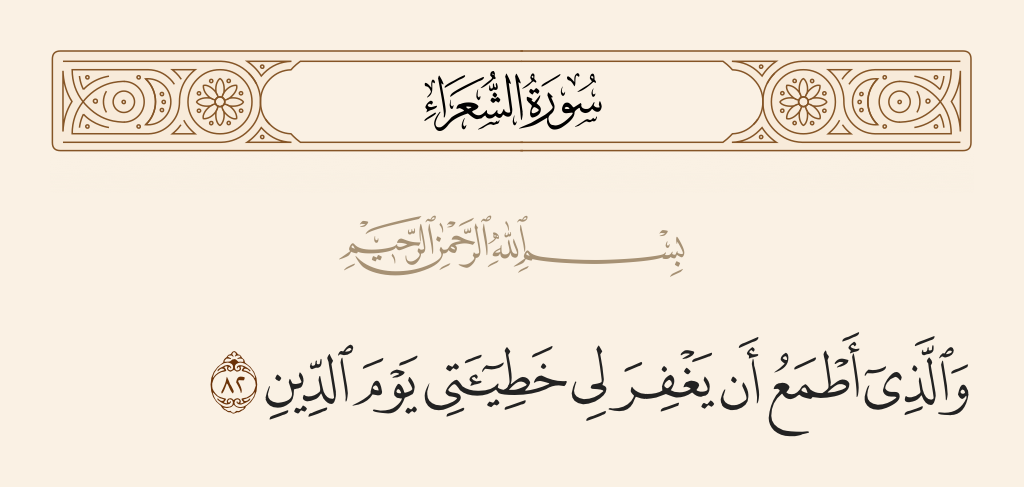 سُورَةُ الشُّعَرَاءِ
بِسْمِ ٱللَّهِ ٱلرَّحْمَٰنِ ٱلرَّحِيمِ
وَٱلَّذِىٓ أَطْمَعُ أَن يَغْفِرَ لِى خَطِيٓـَٔتِى يَوْمَ ٱلدِّينِ ٨٢